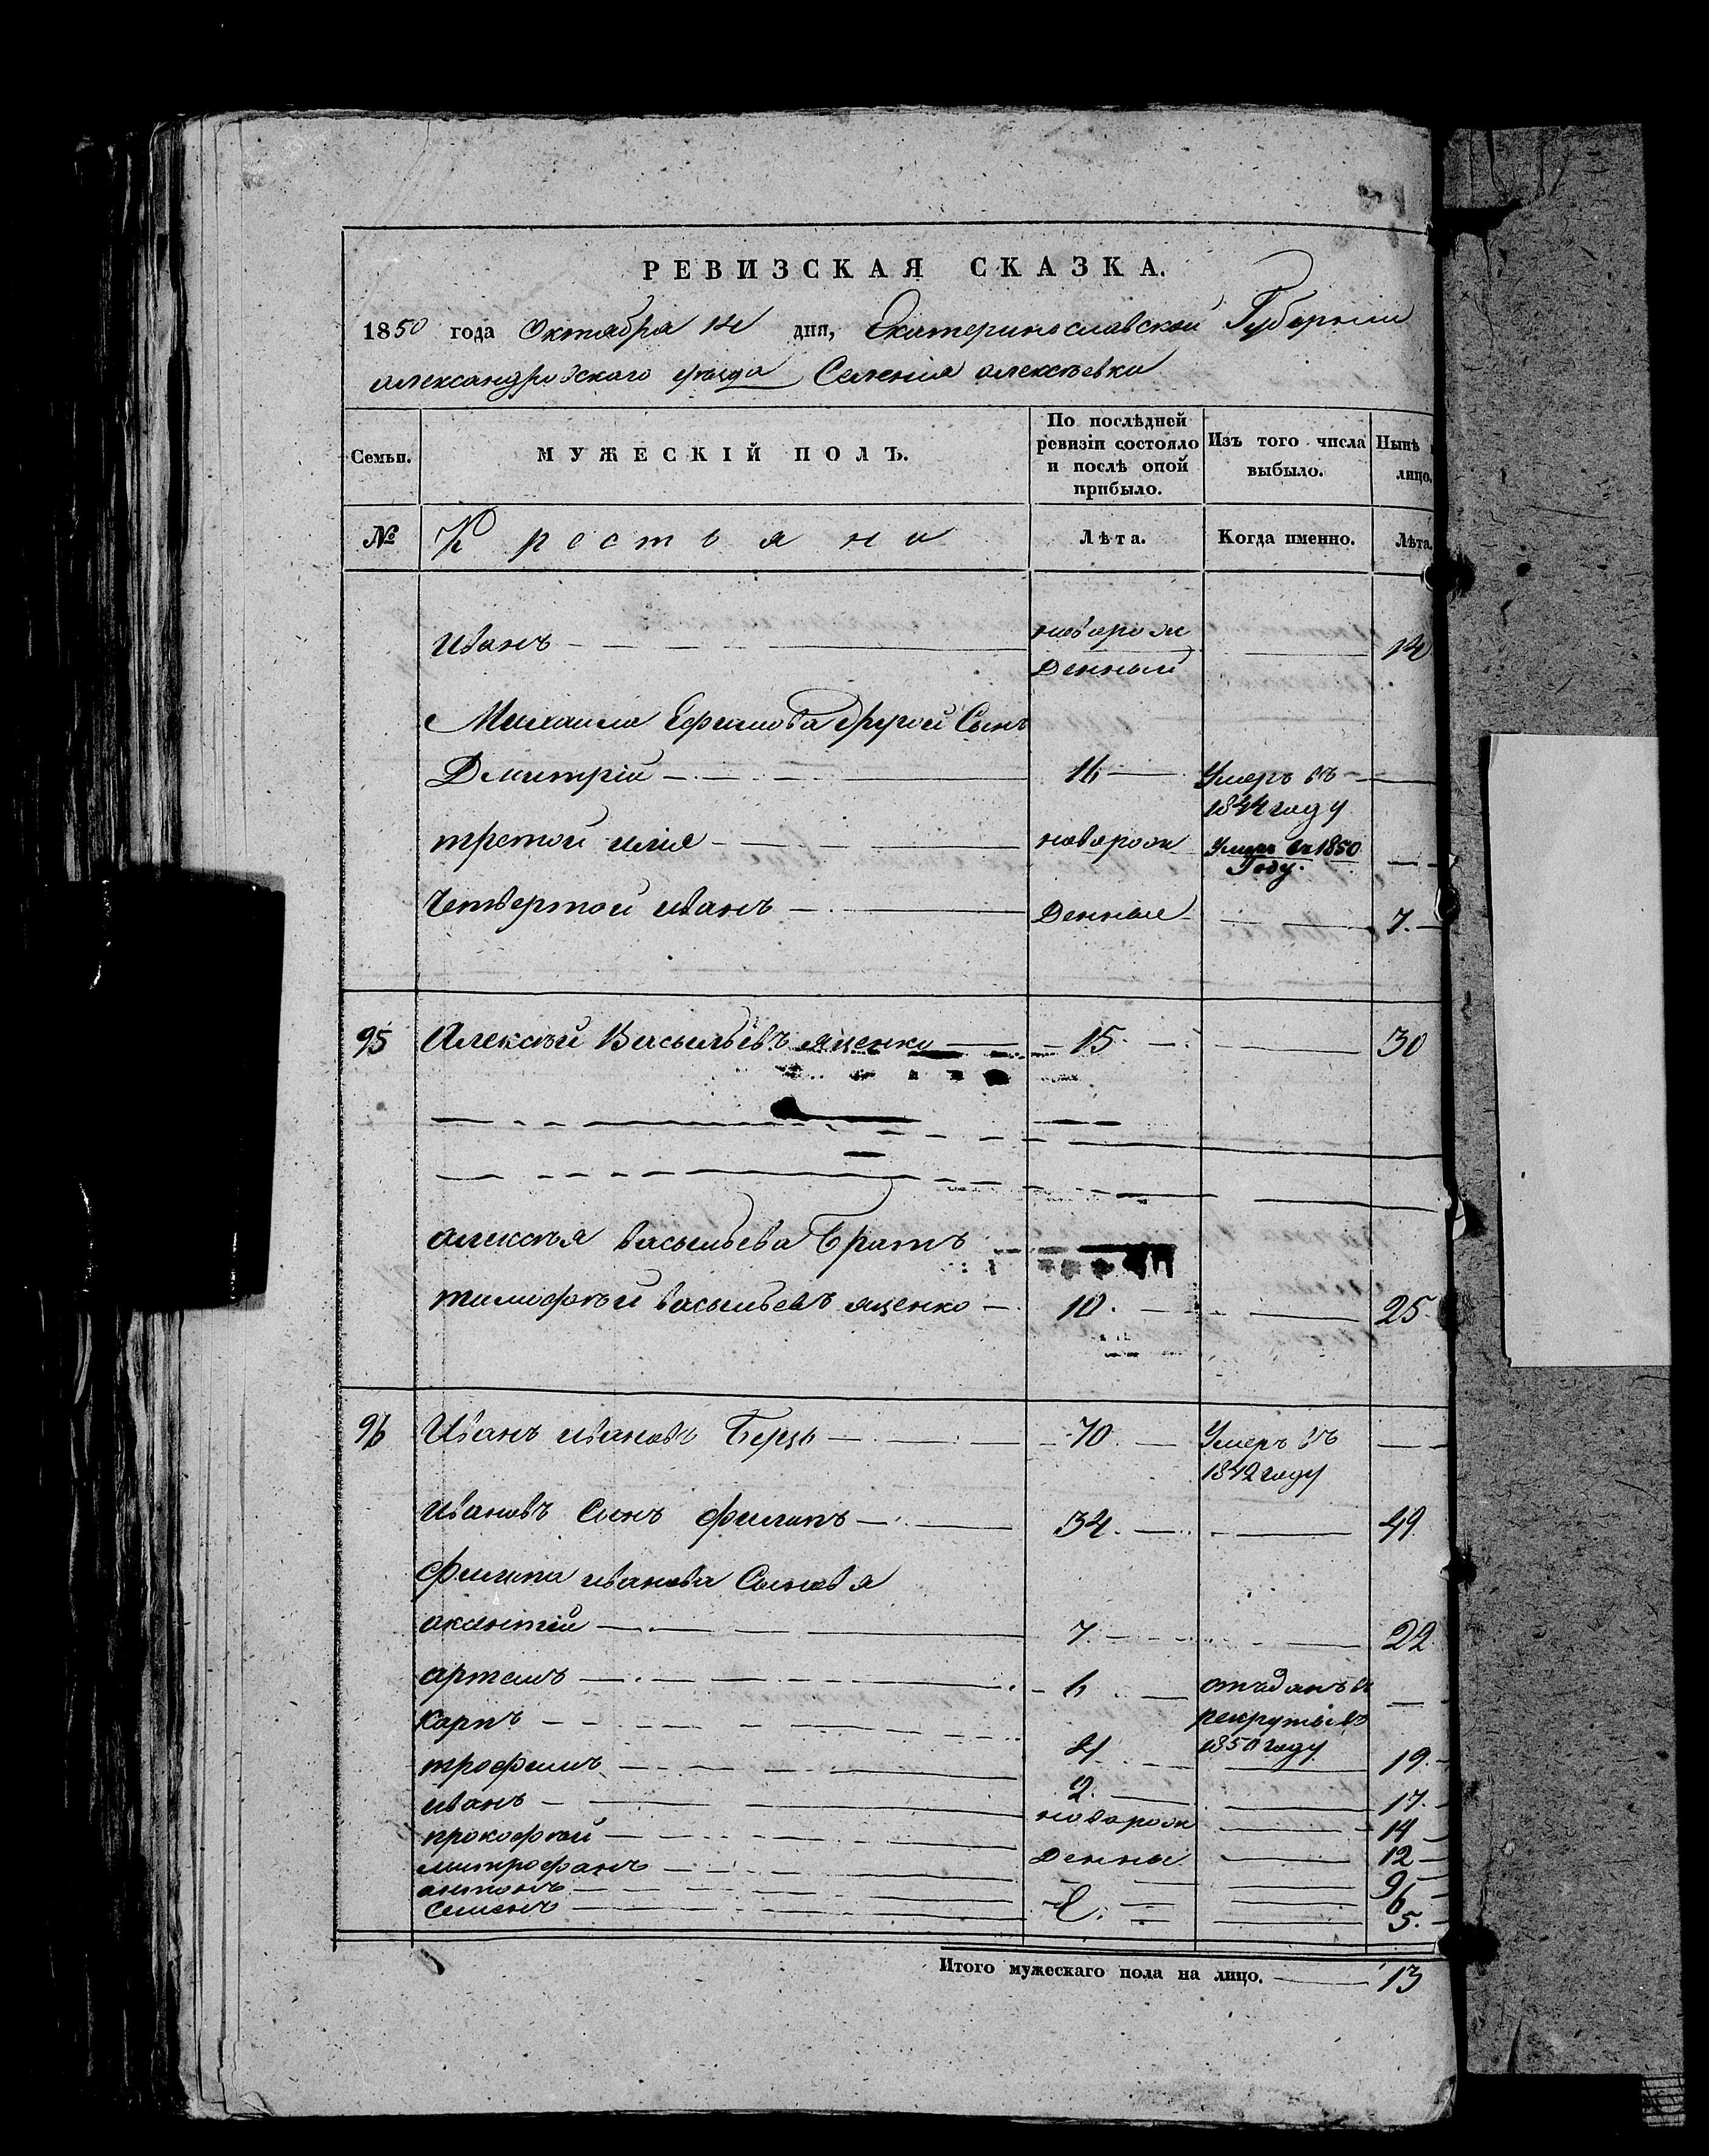 РЕВИЗСКАЯ СКАЗКА.
1850 года Октября 14 дня, Екатеринославской Губернии
александровскаго уѣзда Селенія алексѣевки
Семьи. МУЖЕСКІЙ ПОЛЪ. По послѣдней ревизіи состояло и послѣ оной прибыло. Изъ того числа выбыло. Нынѣ лицо.
№ Крестьяне Лѣта. Когда именно. Лѣта.
Иванъ новорож 14
Денный
Михаила Ефимова другой Сынъ
Дмитрій 11 Умеръ въ
1844 году
третой илия новорож Умеръ въ 1850
Году.
Четвертой иванъ Денные 7.
95 Алексѣй Васильевъ яценко 15. 30
алексѣя васыльева Братъ
тимофѣй васыльевъ яценко 10. 25
96 Иванъ ивановъ 70. Умеръ въ
1842 году
ивановъ Сынъ филипъ 34. 49
филипа иванова Сыновя
7. 22
артемъ 6 отъданъ въ
карпъ рекруты въ
4 1850 году 19.
трофимъ 2. 17.
иванъ новорож 14
прокофѣй Денны 12
митрофанъ 9
антонъ 6
семенъ 5.
Итого мужескаго пола на лицо. 13